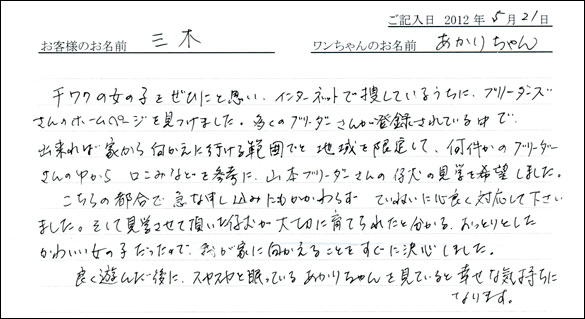 ご記入日 2012年 5月 21日
お客様のお名前 三木 ワンちゃんのお名前 あかりちゃん
チワワの女の子をぜひにと思い、インターネットで捜しているうちに、ブリーダーズ
さんのホームページを見つけました。多くのブリーダーさんが登録されている中で、
出来れば家から向かえに行ける範囲でと地域を限定して、何件かのブリーダー
さんの中から口コミなどを参考に、山本ブリーダーさんの仔犬の見学を希望しました。
こちらの都合で急な申し込みにもかかわらず ていねいに心良く対応して下さい
ました。そして見学させて頂いた仔犬が大切に育てられたと分かる、おっとりとした
かわいい女の子だったので、我が家に向かえることをすぐに決心しました。
良く遊んだ後に、スヤスヤと眠っているあかりちゃんを見ていると幸せな気持ちに
なります。